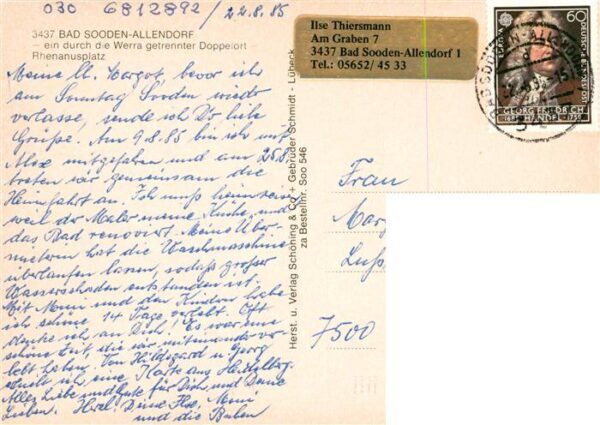 030 6812892 / 22.8.85
3437 BAD SOODEN-ALLENDORF
— ein durch die Werra getrennter Doppelort
Rhenanusplatz
Meine lb. Margot, bevor ich
am Sonntag Sooden wieder
verlasse, sende ich Dir liebe
Grüße. Am 9.8.85 bin ich mit
mitgefahren und am 25.8.
treten wir gemeinsam die
Heimfahrt an. Ich muß
weil der Maler meine Küche und
das Bad renoviert. Meine Über-
mieterin hat die Waschmaschine
überlaufen lassen, sodaß großer
Wasserschaden entstanden ist.
Mit Moni und den Kindern habe
ich schöne 14 Tage verlebt. Oft
denke ich an Dich! Es war eine
schöne Zeit, die wir miteinander ver-
lebt haben. Von Hildegard u. Georg
erhielt ich eine Karte aus Heidelberg.
Alles Liebe und Gute für Dich und Deine
Lieben. Herzl. Deine Ilse, Moni
und die Buben
Herst. u. Verlag Schöning & Co + Gebrüder Schmidt - Lübeck
za Bestellnr. Soo 546
Ilse Thiersmann
Am Graben 7
3437 Bad Sooden-Allendorf 1
Tel.: 05652/ 45 33
EUROPA
60
DEUTSCHE BUNDESPOST
GEORG FRIEDRICH
1685 HÄNDEL 1759
BAD SOODEN-ALLENDORF
Frau
Marg
7500